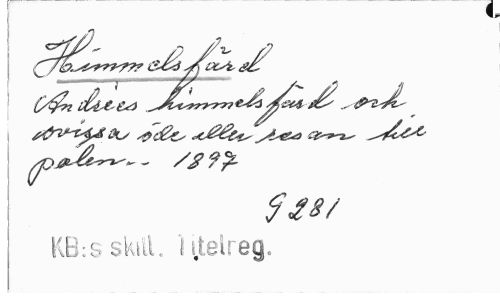 Himmelsfärd
Andrées himmelsfärd och
ovissa öde eller resan till
polen.. 1897
G 281
KB:s skill. Titelreg.